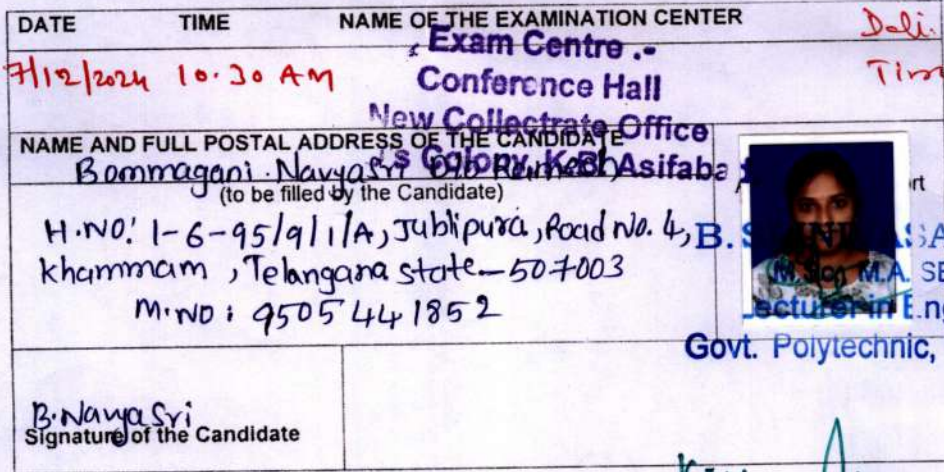 DATE TIME NAME OF THE EXAMINATION CENTER
Exam Centre :-
7/12/2024 10.30 AM
Conference Hall
New Collectrate Office
NAME AND FULL POSTAL ADDRESS OF THE CANDIDATE
s Colony, K.B. Asifaba
Bommagani. Navyasri D/o Ramesh
(to be filled by the Candidate)
H.NO: 1-6-95/9/1/A, Jublipura, Road No. 4,
khammam, Telangana state-507003
M.NO: 9505441852
M.A.
Lecturer in Eng
Govt. Polytechnic,
B.Navya Sri
Signature of the Candidate